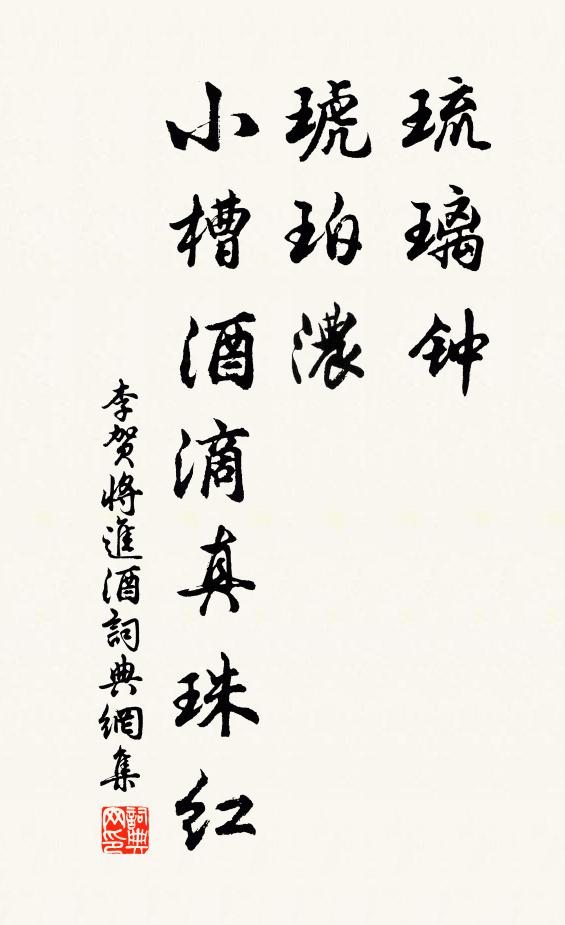 琉璃钟
琥珀濃
小槽酒滴真珠红
李贺將進酒詞典網集
詞典网印